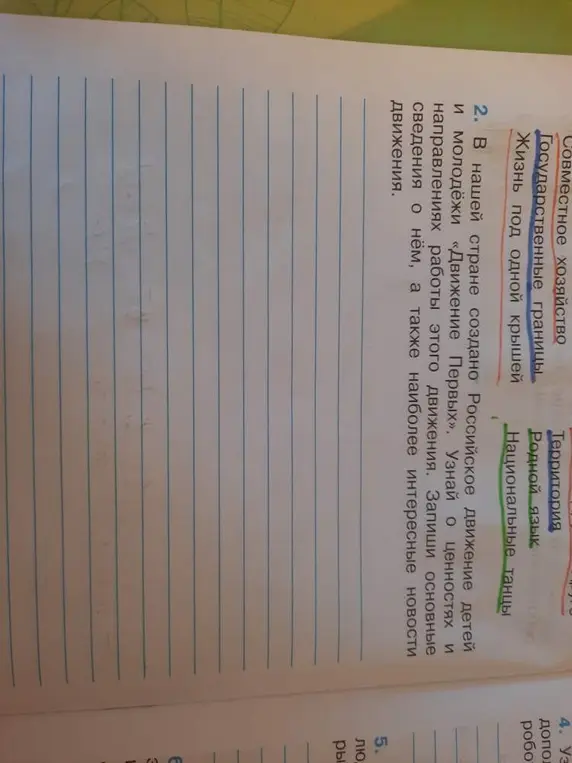 Совместное хозяйство
Государственные границы
Жизнь под одной крышей
Территория
Родной язык
Национальные танцы
2. В нашей стране создано Российское движение детей
и молодёжи «Движение Первых». Узнай о ценностях и
направлениях работы этого движения. Запиши основные
сведения о нём, а также наиболее интересные новости
движения.
4.
5.
6